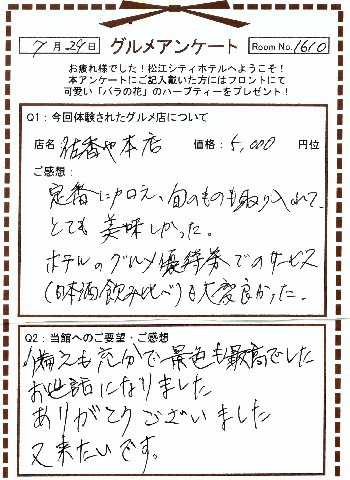 7月29日 グルメアンケート Room No.1610
お疲れ様でした！松江シティホテルへようこそ！
本アンケートにご記入戴いた方にはフロントにて
可愛い「バラの花」のハーブティーをプレゼント！
Q1：今回体験されたグルメ店について
店名 佐香や本店 価格： 5,000 円位
ご感想：
定番に加え、旬のものも取り入れて、
とても美味しかった。
ホテルのグルメ優待券でのサービス
(日本酒飲み比べ)も大変良かった。
Q2：当館へのご要望・ご感想
備えも充分で景色も最高でした
お世話になりました
ありがとうございました
又来たいです。